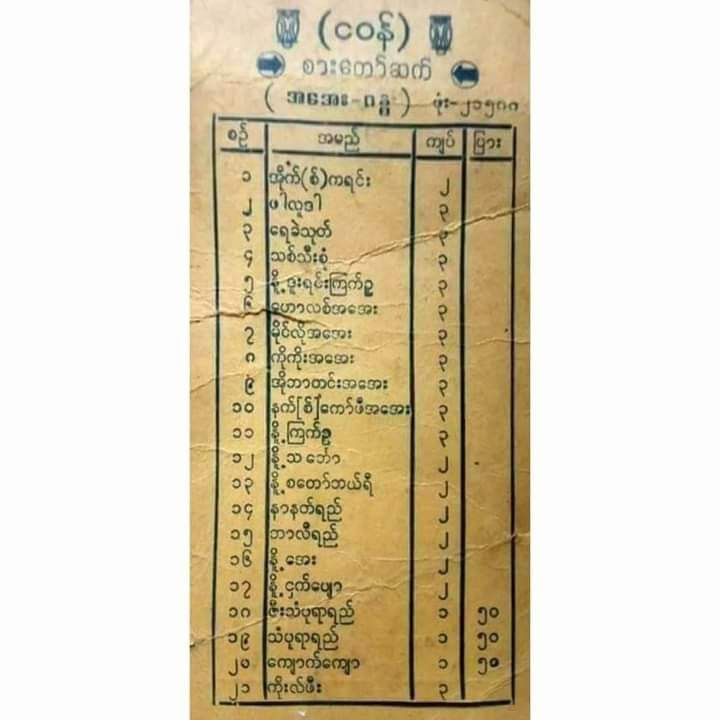 (ငဝန်)
စားတော်ဆက်
( အအေး-ဂန္ဓ ) ဖုံး-၂၁၅၈၈
စဉ် အမည် ကျပ် ပြား
၁ အိုက်(စ်)ကရင်း ၂
၂ ဖါလူဒါ ၃
၃ ရေခဲသုတ် ၃
၄ သစ်သီးစုံ ၃
၅ နို့ဒူးရင်းကြက်ဥ ၃
၆ ဟောလစ်အအေး ၃
၇ မိုင်လိုအအေး ၃
၈ ကိုကိုးအအေး ၃
၉ အိုဘာတင်းအအေး ၃
၁၀ နက်[စ်]ကော်ဖီအအေး ၃
၁၁ နို့ကြက်ဥ ၃
၁၂ နို့သင်္ဘော ၂
၁၃ နို့စတော်ဘယ်ရီ ၂
၁၄ နာနတ်ရည် ၂
၁၅ ဘာလီရည် ၂
၁၆ နို့အေး ၂
၁၇ နို့ငှက်ပျော ၂
၁၈ ဇီးသံပုရာရည် ၁ ၅၀
၁၉ သံပုရာရည် ၁ ၅၀
၂၀ ကျောက်ကျော ၁ ၅၀
၂၁ ကိုးလ်ဖီး ၃